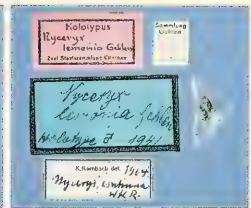 Holotypus
Nyceryx
lemonia Gehlen
Zool. Staatssammlung München
Sammlung
Gehlen
Nyceryx
lemonia Gehlen
Holotype ♂ 1941
K. Kernbach det. 1964
Nyceryx